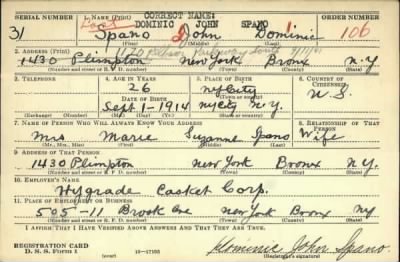 CORRECT NAME:
SERIAL NUMBER 1. NAME (Print) DOMINIC JOHN SPANO ORDER NUMBER
31 Spano John Dominic 106
(First) (Middle) (Last)
2. ADDRESS (Print) Pelham Parkway South
1430 Plimpton New York Bronx N.Y.
(Number and street or R. F. D. number) (Town) (County) (State)
3. TELEPHONE 4. AGE IN YEARS 5. PLACE OF BIRTH 6. COUNTRY OF CITIZENSHIP
26 NYCity
DATE OF BIRTH U.S.
Sept 1-1914 NYCity N.Y.
7. NAME OF PERSON WHO WILL ALWAYS KNOW YOUR ADDRESS 8. RELATIONSHIP OF THAT PERSON
Mrs Marie Suzanne Spano Wife
(Mr., Mrs., Miss) (First) (Middle) (Last)
9. ADDRESS OF THAT PERSON
1430 Plimpton New York Bronx N.Y.
(Number and street or R. F. D. number) (Town) (County) (State)
10. EMPLOYER'S NAME
Hygrade Casket Corp.
11. PLACE OF EMPLOYMENT OR BUSINESS
505-11 Brook Ave New York Bronx NY
(Number and street or R. F. D. number) (Town) (County) (State)
I AFFIRM THAT I HAVE VERIFIED ABOVE ANSWERS AND THAT THEY ARE TRUE.
REGISTRATION CARD
D. S. S. Form 1 (over) 16-17105 Dominic John Spano.
(Registrant's signature)